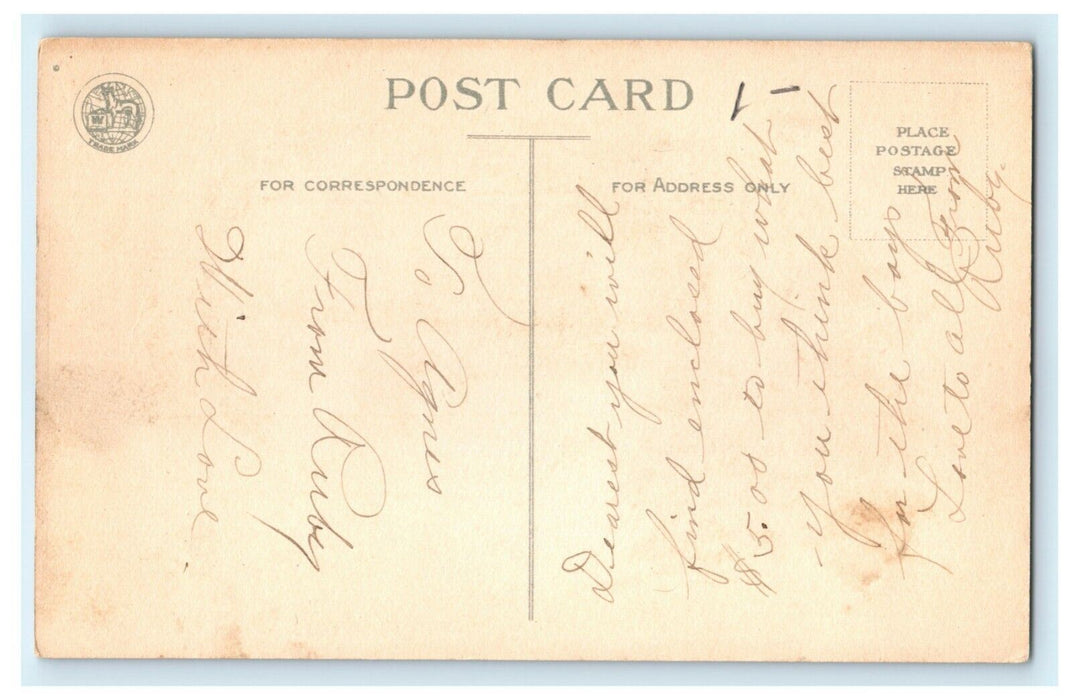 POST CARD
FOR CORRESPONDENCE
FOR ADDRESS ONLY
PLACE
POSTAGE
STAMP
HERE
TRADE MARK
To Agnes
From Ruby
With Love
Dearest you will
find enclosed
$5.00 to buy what
you think best
for the boys
Love to all From
Ruby.